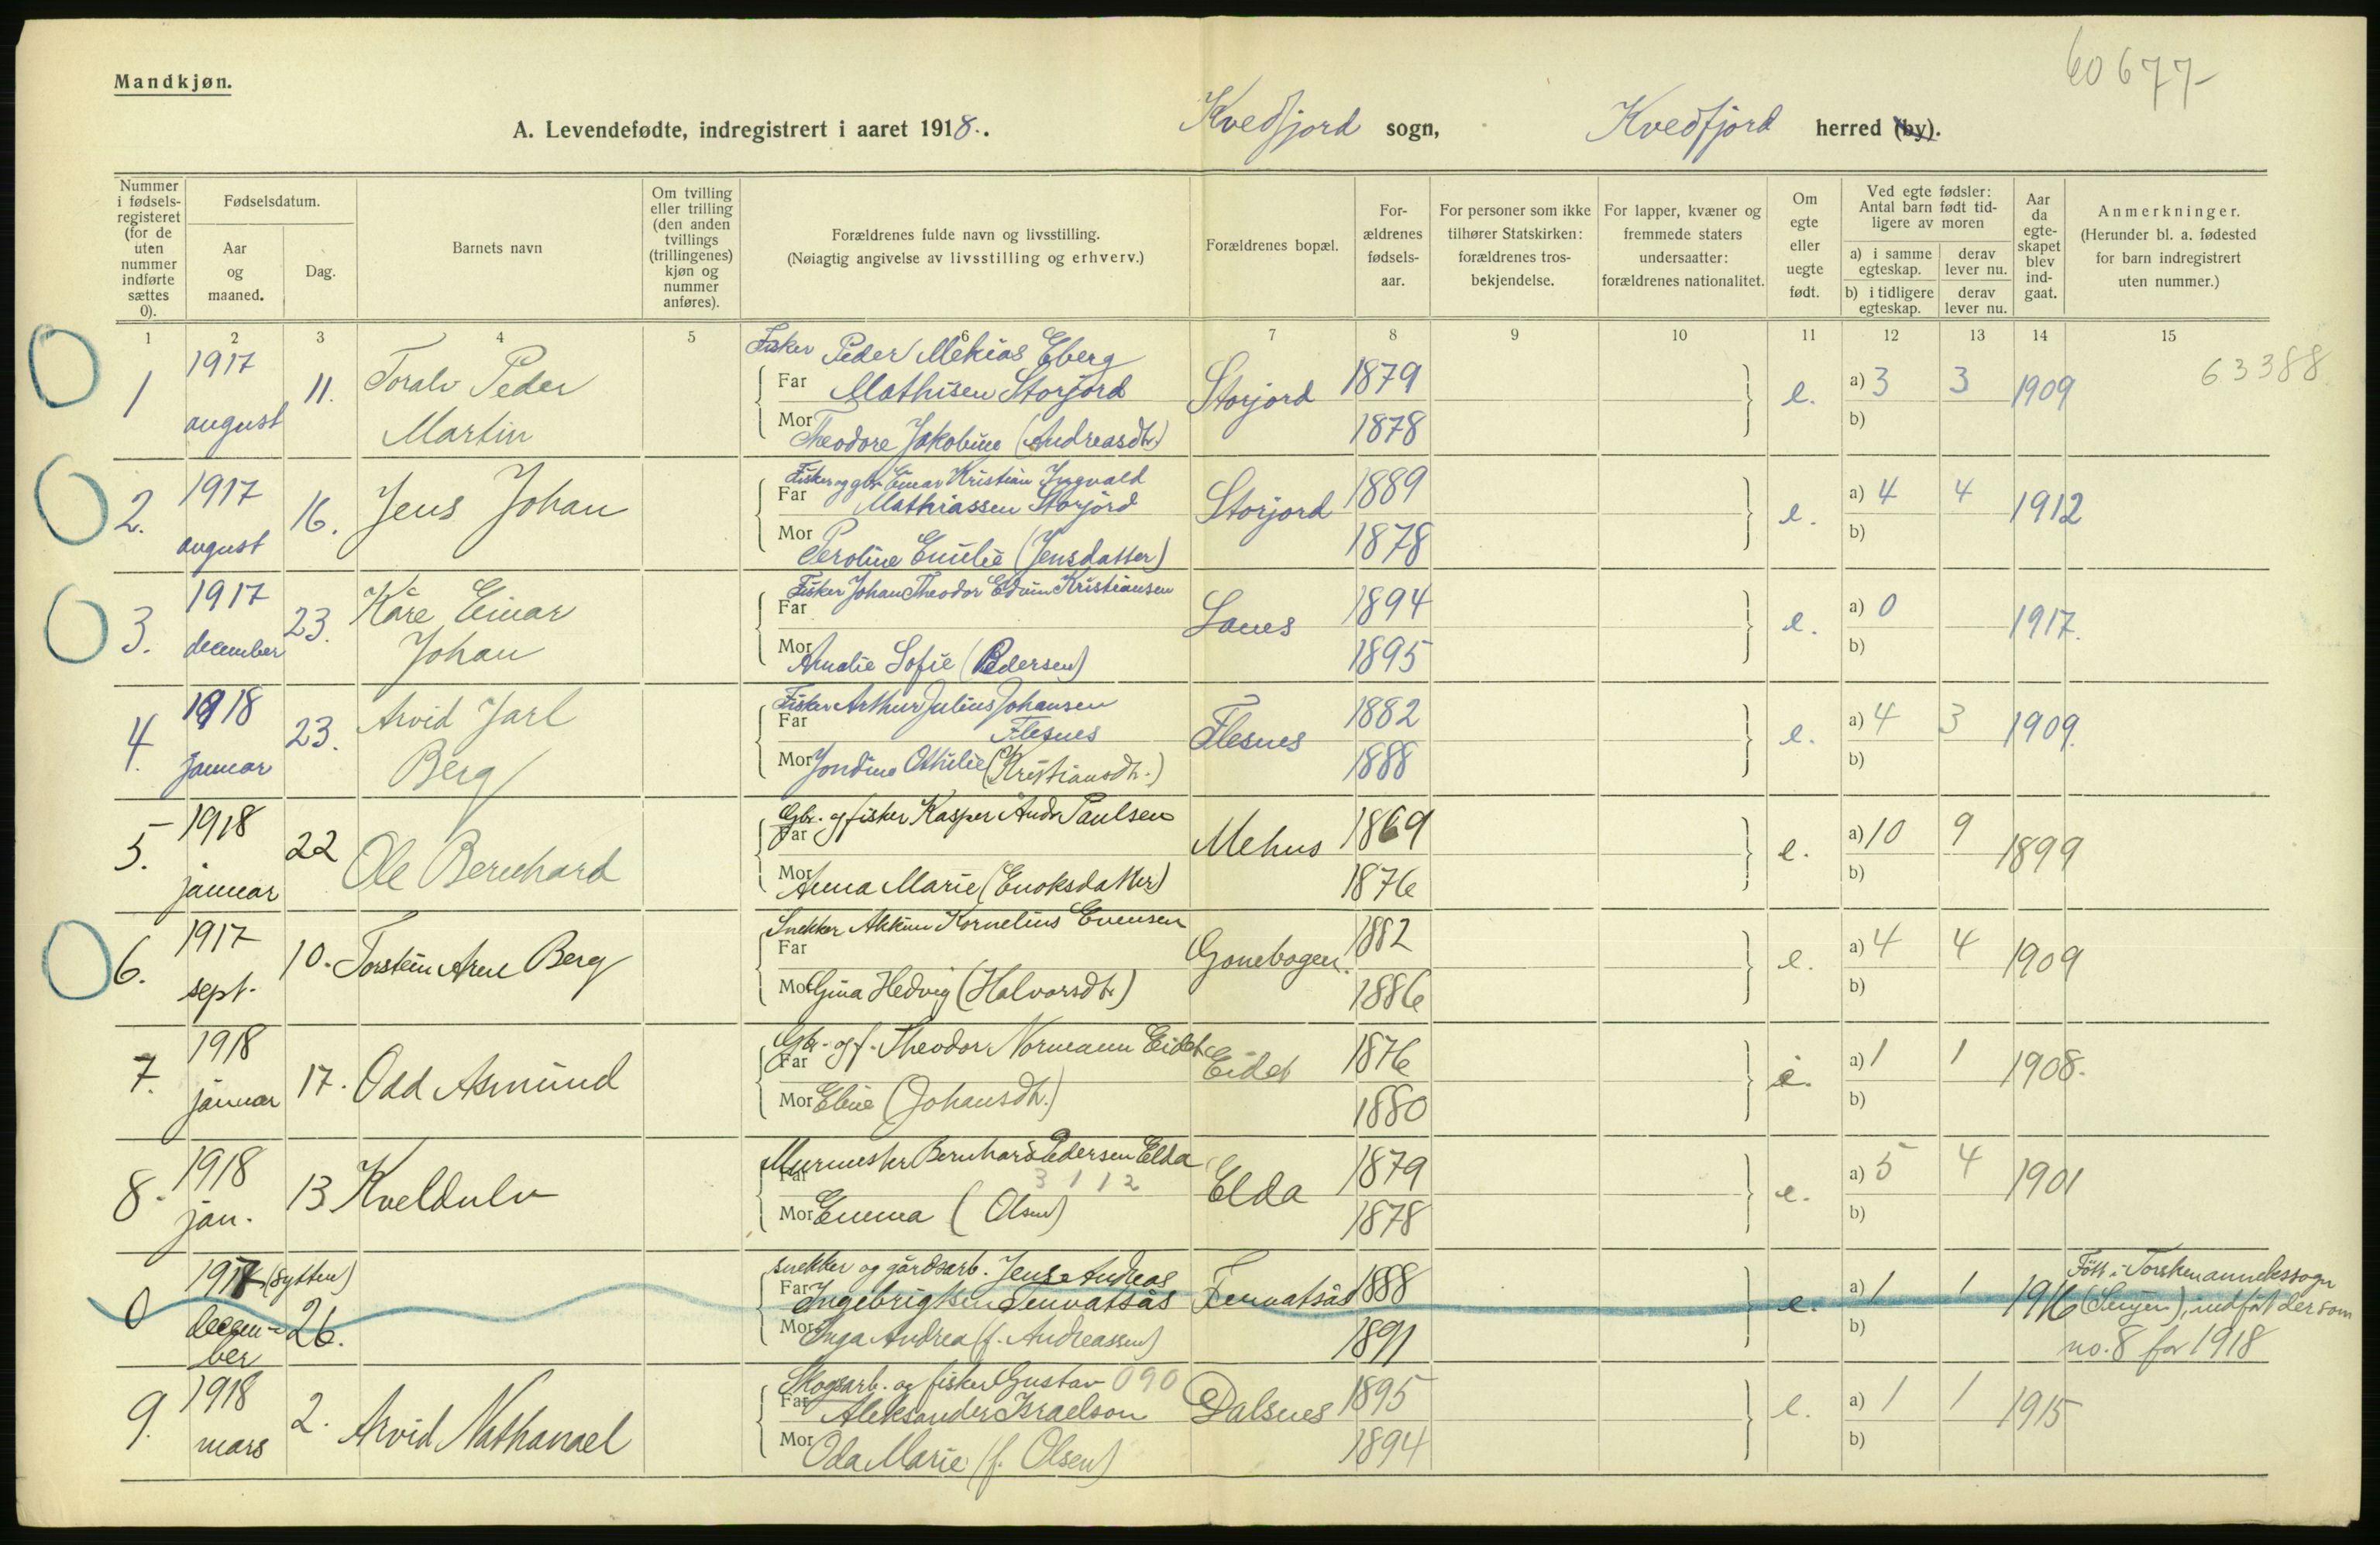 60677
Mandkjøn.
A. Levendefødte, indregistrert i aaret 1918.. Kvedfjord sogn, Kvedfjord herred (by).
Nummer i fødsels-registeret (for de uten nummer indførte sættes 0).
Fødselsdatum.
Aar og maaned.
Dag.
Barnets navn
Om tvilling eller trilling (den anden tvillings (trillingenes) kjøn og nummer anføres).
Forældrenes fulde navn og livsstilling.
(Nøiagtig angivelse av livsstilling og erhverv.)
Forældrenes bopæl.
For-ældrenes fødsels-aar.
For personer som ikke tilhører Statskirken: forældrenes tros-bekjendelse.
For lapper, kvæner og fremmede staters undersaatter: forældrenes nationalitet.
Om egte eller uegte født.
Ved egte fødsler: Antal barn født tid-ligere av moren
a) i samme egteskap. derav lever nu.
b) i tidligere egteskap. derav lever nu.
Aar da egte-skapet blev ind-gaat.
Anmerkninger.
(Herunder bl. a. fødested for barn indregistrert uten nummer.)
1 2 3 4 5 6 7 8 9 10 11 12 13 14 15
1 1917 august 11. Toralv Peder Martin
Fisker Peder Mekias Eberg
Far Mathisen Storjord
Mor Theodore Jakobine (Andreasdtr.)
Storjord 1879 1878 e. a) 3 3 b) 1909 63388
2. 1917 august 16. Jens Johan
Fisker og gbr. Einar Kristian Ingvald
Far Mathiassen Storjord
Mor Peroline Emilie (Jensdatter)
Storjord 1889 1878 e. a) 4 4 b) 1912
3. 1917 december 23. Kåre Einar Johan
Fisker Johan Theodor Edvin Kristiansen
Far
Mor Amalie Sofie (Pedersen)
Sanes 1894 1895 e. a) 0 b) 1917.
4. 1918 januar 23. Arvid Jarl Berg
Fisker Arthur Julius Johansen
Far Flesnes
Mor Jondine Othilie (Kristiansdtr.)
Flesnes 1882 1888 e. a) 4 3 b) 1909.
5. 1918 januar 22 Ole Bernhard
Gbr. og fisker Kasper Andr. Paulsen
Far
Mor Anna Marie (Enoksdatter)
Mehus 1869 1876 e. a) 10 9 b) 1899
6. 1917 sept. 10. Torstein Arne Berg
Snekker Kornelius Evensen
Far
Mor Gina Hedvig (Halvorsdtr.)
Gonebogen. 1882 1886 e. a) 4 4 b) 1909
7. 1918 januar 17. Odd Asmund
Gbr. og f. Theodor Normann Eidet
Far
Mor Eline (Johansdtr.)
Eidet 1876 1880 e. a) 1 1 b) 1908.
8. 1918 jan. 13 Kveldulv
Murmester Bernhard Pedersen Elda
Far 3112
Mor Emma (Olsen)
Elda 1879 1878 e. a) 5 4 b) 1901
0 1917 (sytten) decem-ber 26.
snekker og gårdsarb. Jens Andreas
Far Ingebrigtsen Tenvatsås
Mor Inga Andrea (f. Andreassen)
Tenvatsås 1888 1891 e. a) 1 1 b) 1916
Født i Torsken annekssogn
(Senjen), indført der som
no. 8 for 1918
9. 1918 mars 2. Arvid Nathanael
Skogsarb. og fisker Gustav 090
Far Aleksander Israelson
Mor Oda Marie (f. Olsen)
Dalsnes 1895 1894 e. a) 1 1 b) 1915